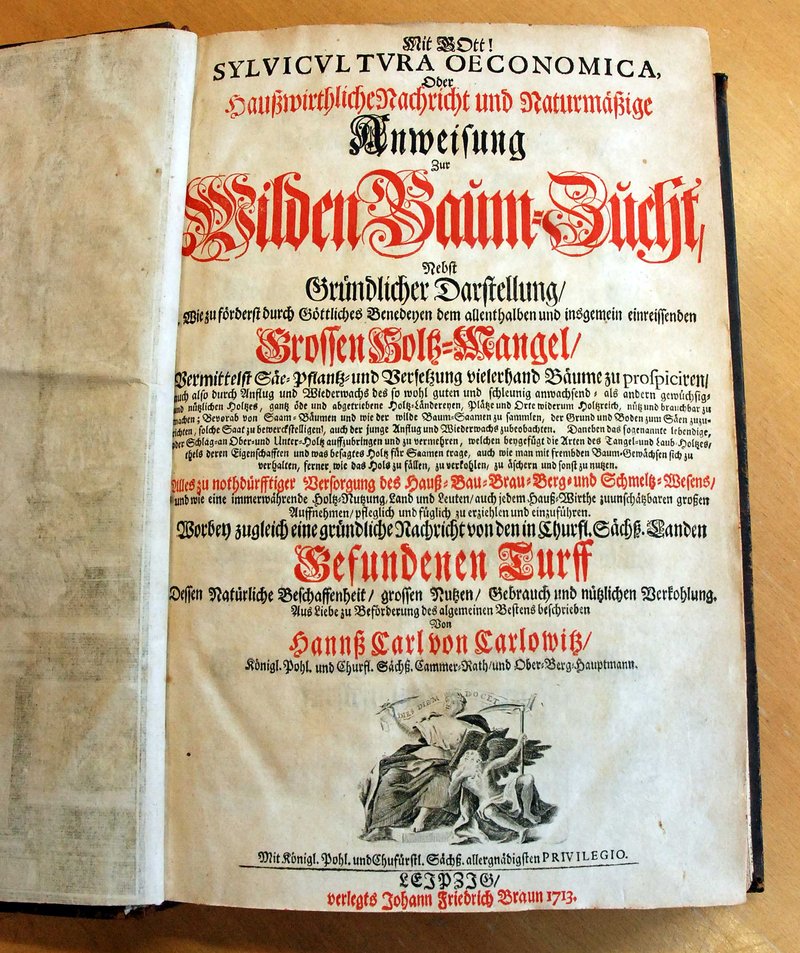 Mit GOtt!
SYLVICVLTVRA OECONOMICA,
Oder
Haußwirthliche Nachricht und Naturmäßige
Anweisung
Zur
Wilden Baum-Zucht/
Nebst
Gründlicher Darstellung/
Wie zu förderst durch Göttliches Benedeyen dem allenthalben und insgemein einreissenden
Grossen Holtz-Mangel/
Vermittelst Säe- Pflantz- und Versetzung vielerhand Bäume zu prospiciren/
auch also durch Anflug und Wiederwachs des so wohl guten und schleunig anwachsend- als andern gewüchsig-
und nützlichen Holtzes, gantz öde und abgetriebene Holtz-Ländereyen, Plätze und Orte widerum Holtzreich, nütz und brauchbar zu
machen; Bevorab von Saam-Bäumen und wie der wilde Baum-Saamen zu sammlen, der Grund und Boden zum Säen zuzu-
richten, solche Saat zu bewerckstelligen, auch der junge Anflug und Wiederwachs zubeobachten. Daneben das sogenannte lebendige,
oder Schlag-an Ober-und Unter-Holtz auffzubringen und zu vermehren, welchen beygefügt die Arten des Tangel-und Laub-Holtzes,
theils deren Eigenschafften und was besagtes Holtz für Saamen trage, auch wie man mit frembden Baum-Gewächsen sich zu
verhalten, ferner wie das Holtz zu fällen, zu verkohlen, zu äschern und sonst zu nutzen.
Alles zu nothdürfftiger Versorgung des Hauß-Bau-Brau-Berg-und Schmeltz-Wesens/
und wie eine immerwährende Holtz-Nutzung, Land und Leuten/ auch jedem Hauß-Wirthe zuunschätzbaren großen
Auffnehmen/ pfleglich und füglich zu erziehlen und einzuführen.
Worbey zugleich eine gründliche Nachricht von den in Churfl. Sächß. Landen
Gefundenen Turff
Dessen Natürliche Beschaffenheit/ grossen Nutzen/ Gebrauch und nützlichen Verkohlung.
Aus Liebe zu Beförderung des algemeinen Bestens beschrieben
Von
Hannß Carl von Carlowitz/
Königl. Pohl. und Churfl. Sächß. Cammer-Rath/ und Ober-Berg-Hauptmann.
DIES DIEM DOCET
Mit Königl. Pohl. und Chufürstl. Sächß. allergnädigsten PRIVILEGIO.
LEIPZIG/
verlegts Johann Friedrich Braun 1713.